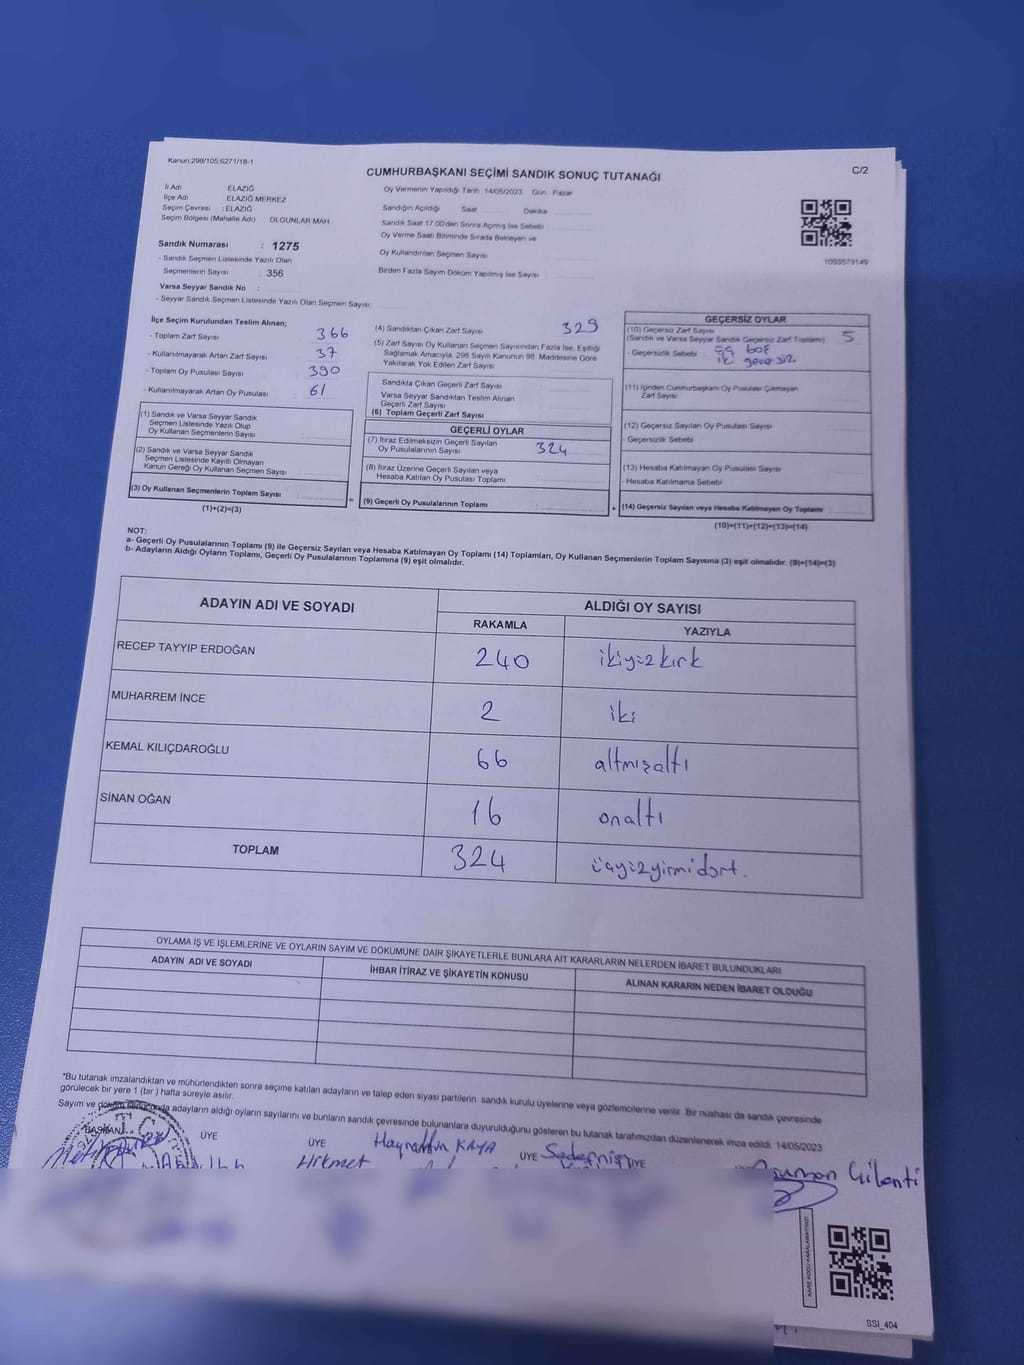 Kanun;298/105;6271/18-1
C/2
CUMHURBAŞKANI SEÇİMİ SANDIK SONUÇ TUTANAĞI
İl Adı ELAZIĞ
İlçe Adı ELAZIĞ MERKEZ
Seçim Çevresi : ELAZIĞ
Seçim Bölgesi (Mahalle Adı) OLGUNLAR MAH
Sandık Numarası : 1275
- Sandık Seçmen Listesinde Yazılı Olan
Seçmenlerin Sayısı : 356
Varsa Seyyar Sandık No :
- Seyyar Sandık Seçmen Listesinde Yazılı Olan Seçmen Sayısı:
Oy Vermenin Yapıldığı Tarih 14/05/2023 Gün : Pazar
Sandığın Açıldığı Saat Dakika
Sandık Saat 17.00'den Sonra Açılmış İse Sebebi
Oy Verme Saati Bitiminde Sırada Bekleyen ve
Oy Kullandırılan Seçmen Sayısı
Birden Fazla Sayım Döküm Yapılmış İse Sayısı
1093579149
İlçe Seçim Kurulundan Teslim Alınan;
- Toplam Zarf Sayısı : 366
- Kullanılmayarak Artan Zarf Sayısı : 37
- Toplam Oy Pusulası Sayısı : 390
- Kullanılmayarak Artan Oy Pusulası : 61
(1) Sandık ve Varsa Seyyar Sandık
Seçmen Listesinde Yazılı Olup
Oy Kullanan Seçmenlerin Sayısı
(2) Sandık ve Varsa Seyyar Sandık
Seçmen Listesinde Kayıtlı Olmayan
Kanun Gereği Oy Kullanan Seçmen Sayısı
(3) Oy Kullanan Seçmenlerin Toplam Sayısı
(1)+(2)=(3)
(4) Sandıktan Çıkan Zarf Sayısı 329
(5) Zarf Sayısı Oy Kullanan Seçmen Sayısından Fazla İse, Eşitliği
Sağlamak Amacıyla, 298 Sayılı Kanunun 98. Maddesine Göre
Yakılarak Yok Edilen Zarf Sayısı
Sandıkta Çıkan Geçerli Zarf Sayısı
Varsa Seyyar Sandıktan Teslim Alınan
Geçerli Zarf Sayısı
(6) Toplam Geçerli Zarf Sayısı
GEÇERLİ OYLAR
(7) İtiraz Edilmeksizin Geçerli Sayılan
Oy Pusulalarının Sayısı : 324
(8) İtiraz Üzerine Geçerli Sayılan veya
Hesaba Katılan Oy Pusulası Toplamı
(9) Geçerli Oy Pusulalarının Toplamı :
GEÇERSİZ OYLAR
(10) Geçersiz Zarf Sayısı 5
(Sandık ve Varsa Seyyar Sandık Geçersiz Zarf Toplamı)
- Geçersizlik Sebebi boş
geçersiz
(11) İçinden Cumhurbaşkanı Oy Pusulası Çıkmayan
Zarf Sayısı
(12) Geçersiz Sayılan Oy Pusulası Sayısı
- Geçersizlik Sebebi
(13) Hesaba Katılmayan Oy Pusulası Sayısı
- Hesaba Katılmama Sebebi
(14) Geçersiz Sayılan veya Hesaba Katılmayan Oy Toplamı
(10)+(11)+(12)+(13)=(14)
NOT:
a- Geçerli Oy Pusulalarının Toplamı (9) ile Geçersiz Sayılan veya Hesaba Katılmayan Oy Toplamı (14) Toplamları, Oy Kullanan Seçmenlerin Toplam Sayısına (3) eşit olmalıdır. (9)+(14)=(3)
b- Adayların Aldığı Oyların Toplamı, Geçerli Oy Pusulalarının Toplamına (9) eşit olmalıdır.
ADAYIN ADI VE SOYADI ALDIĞI OY SAYISI
RAKAMLA YAZIYLA
RECEP TAYYİP ERDOĞAN 240 ikiyüzkırk
MUHARREM İNCE 2 iki
KEMAL KILIÇDAROĞLU 66 altmışaltı
SİNAN OĞAN 16 onaltı
TOPLAM 324 üçyüzyirmidört.
OYLAMA İŞ VE İŞLEMLERİNE VE OYLARIN SAYIM VE DÖKÜMÜNE DAİR ŞİKAYETLERLE BUNLARA AİT KARARLARIN NELERDEN İBARET BULUNDUKLARI
ADAYIN ADI VE SOYADI İHBAR İTİRAZ VE ŞİKAYETİN KONUSU ALINAN KARARIN NEDEN İBARET OLDUĞU
*Bu tutanak imzalandıktan ve mühürlendikten sonra seçime katılan adayların ve talep eden siyasi partilerin sandık kurulu üyelerine veya gözlemcilerine verilir. Bir nüshası da sandık çevresinde
görülecek bir yere 1 (bir) hafta süreyle asılır.
Sayım ve döküm sonucunda adayların aldığı oyların sayılarını ve bunların sandık çevresinde bulunanlara duyurulduğunu gösteren bu tutanak tarafımızdan düzenlenerek imza edildi. 14/05/2023
BAŞKAN ÜYE ÜYE Hayrettin KAYA ÜYE ÜYE
Hikmet
KARE KODU KARALAMAYINIZ!
SSI_404